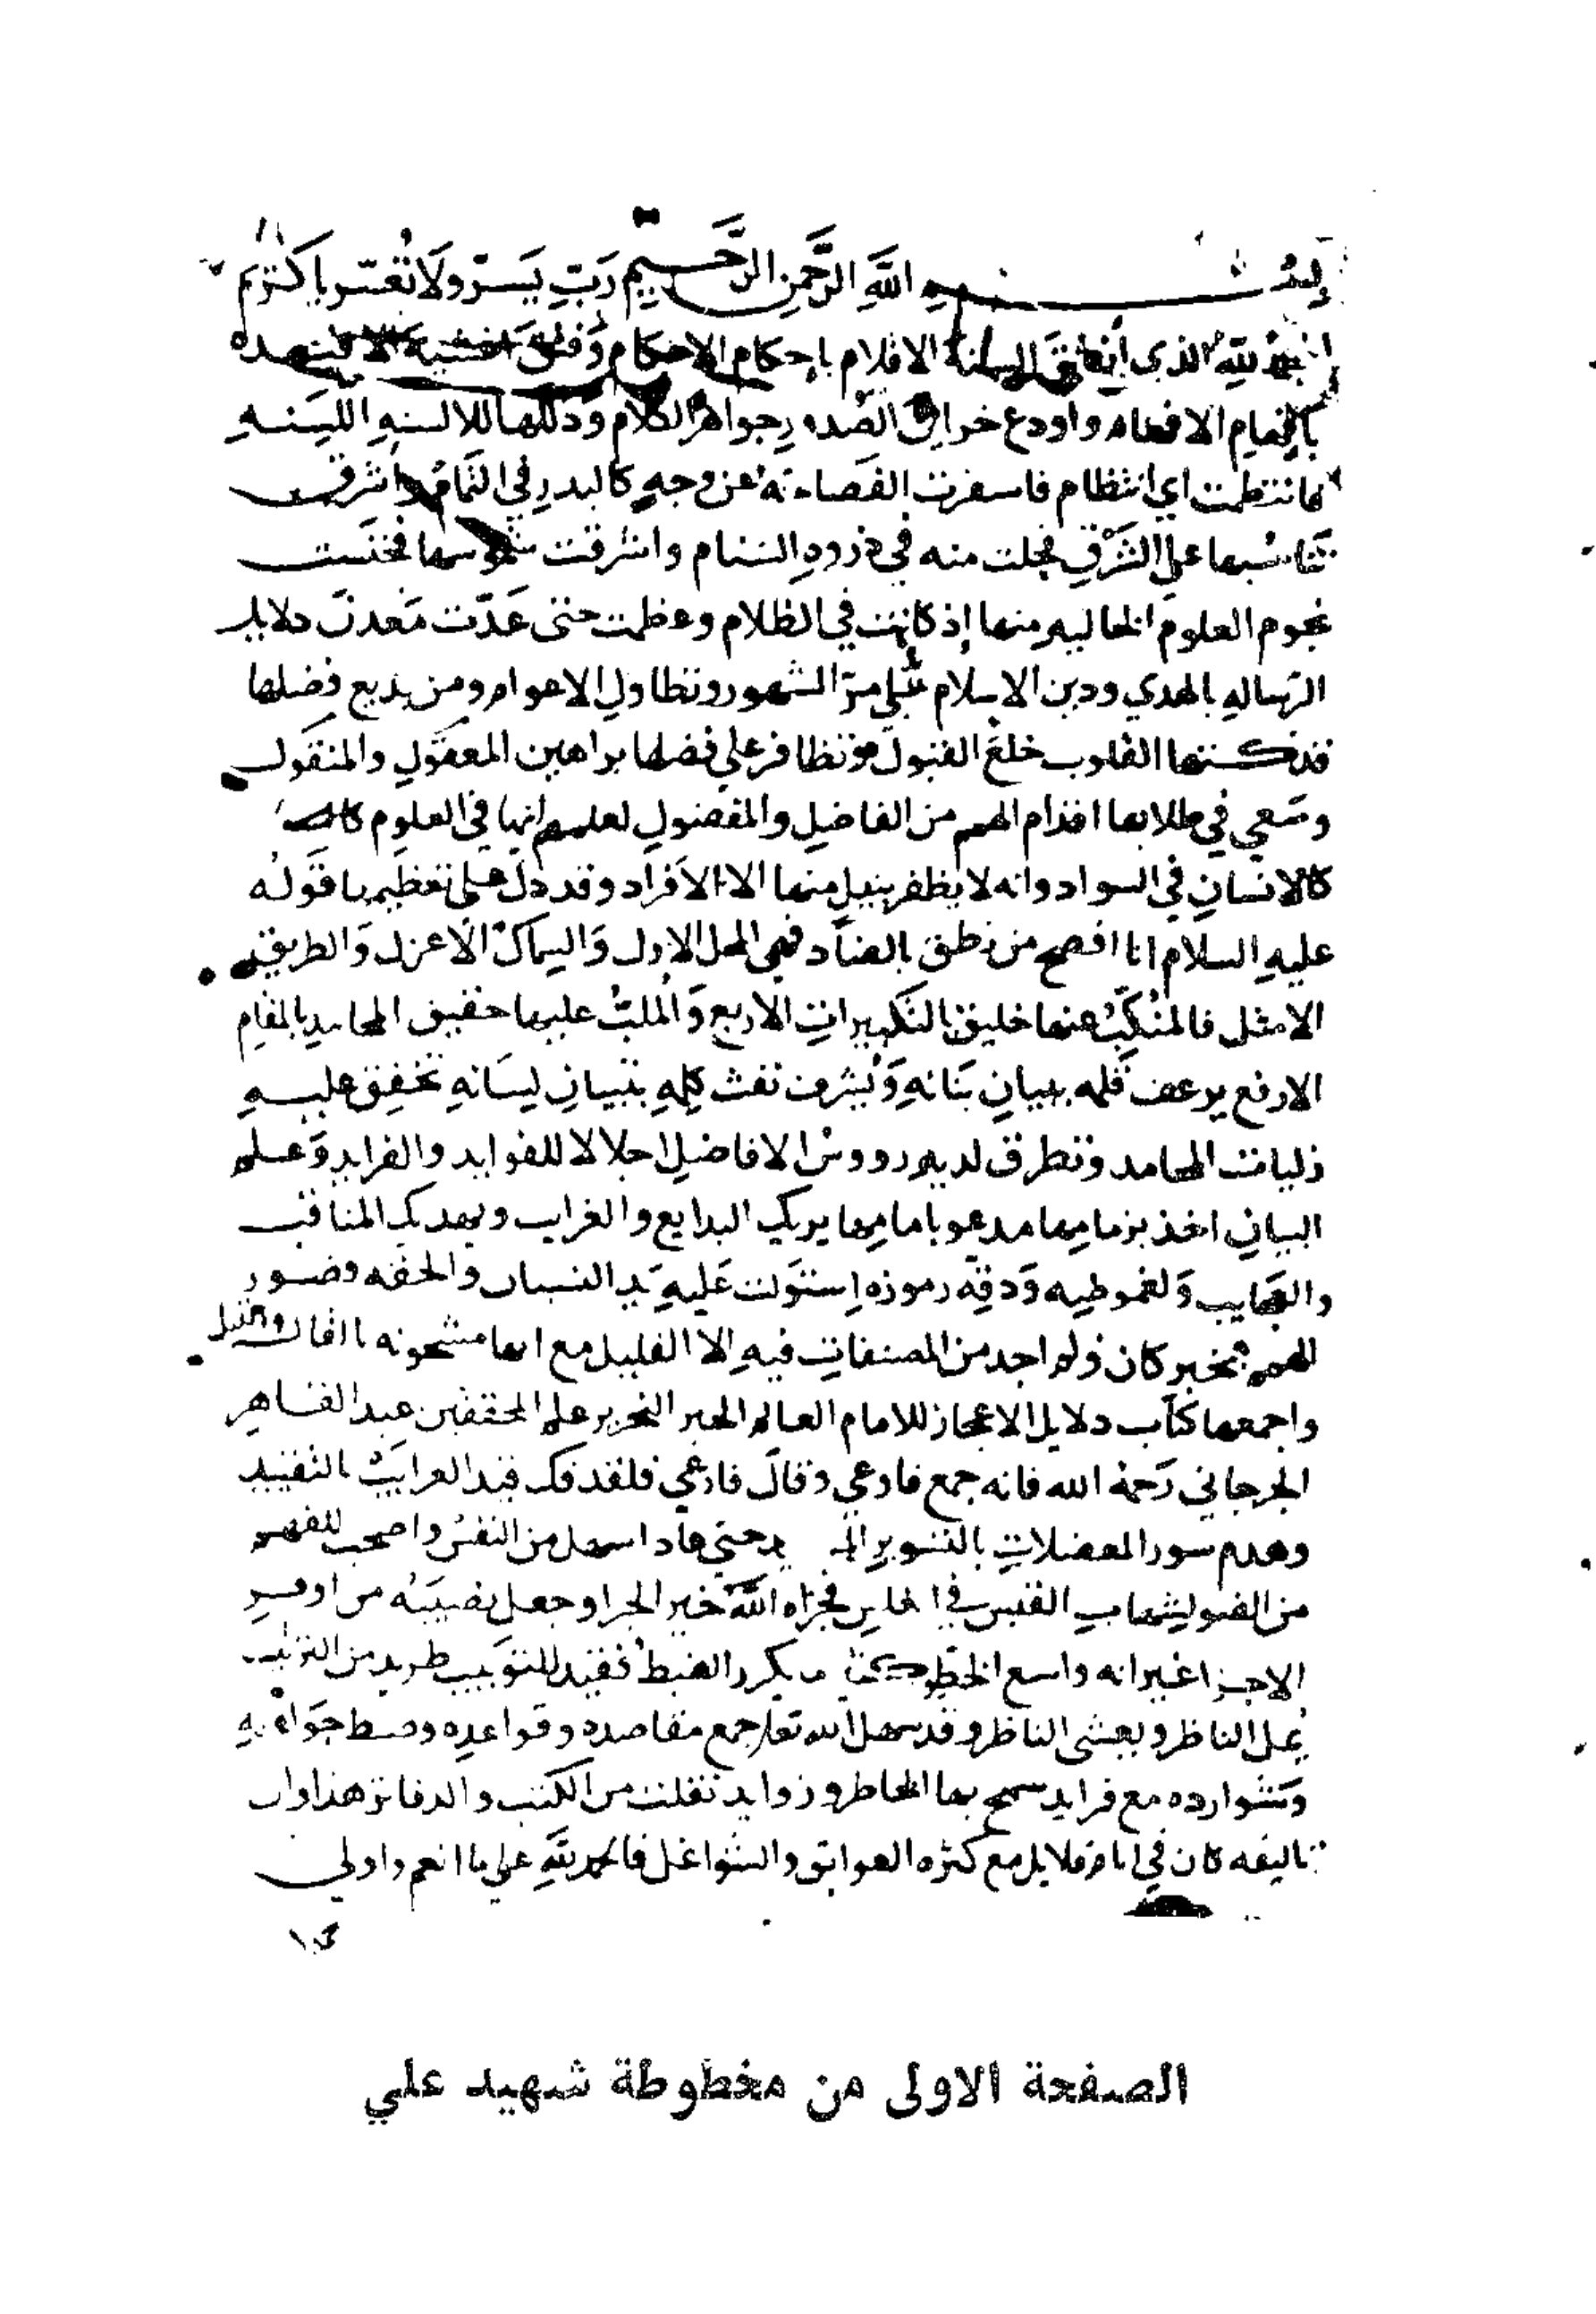 بسم الله الرَّحمنِ الرَّحيم رَبِّ يَسّر ولَا تُعَسّر يا كَريم
الحمد لله الذي أنطق السنة الاقلام باحكام الاحكام وَفتق
بافهام الافهام واودع خزاين الصُدور جواهر الكلام وَذللها للالسنهِ اللَسِنهِ
فانتظمت اي انتظام فاسفرت الفصاحة عن وجهٍ كالبدر في التمام واشرفت
على الشرف فجلت منه في ذروهِ السنام واشرقت شموسها فخنست
نجوم العلوم الخاليه منها إذ كانت في الظلام وعظمت حتى عَدّت مَعدنَ دلايل
الرساله بالهدي ودين الاسلام عَلي مرّ الشهور وتطاولِ الاعوام ومن بديع فضلها
قد كستها القلوب خلعَ القبول وتظافر علي فضلها براهين المعقولِ والمنقول
وسَعي في طلابها اقدام الهمم من الفاضلِ والمفضولِ لعلمهم انها في العلوم
كالانسانِ في السواد وانه لا يظفر بنيلٍ منها الا الافراد وقد دلّ على تعظيمها قَولُه
عليهِ السلام انا افصح من نطق بالضاد فهي المحل الاول وَالسِماك الاعزل وَالطريقه
الامثل فالمنُكِّبُ عنها خليق بالتكبيرات الاربع وَالمُلبُّ عليها حقيق المحامدِ بالمقامِ
الارفع يرعف قَلمه ببيانِ بَنانهِ وَيُشرف نفث كلِمِهِ بتبيانِ لِسَانهِ تخفِق عليهِ
المحامد وتطرق لديه رووسُ الافاضلِ اجلالا للفوايد والفرايدِ وَعلم
البيانِ اخذ بزمامِها مدعو بامامِها يريك البدايع والغرايب ويهديك المناقب
والعجايب وَلغموضِه وَدقةِ رموزه اِستَولت عَليهِ يَد النسيان والحقه وقصور
الهمم بخبر كان ولم اجد من المصنفاتِ فيهِ الا القليل مع انها مشحونه بالقال والقيل
واجمعها كتاب دلايل الاعجاز للامام العالم الحبر النحرير علم المحققين عبد القاهر
الجرجاني رَحمهُ الله فانه جمع فاوعي وقالَ فادعي فلقد فك قيد الغرايب بالتقييد
وهدم سور المعضلاتِ بالتسوير حتي عاد اسهل من النفس
من القبول شهاب القبس في فجزاه اللَّه خير الجزا وجعل نصيبَه من اوفرِ
الاجزا غير انه واسع الخطو كثيرا ما يكرر الضبط فقيد للتبويب طريد من الترتيب
يُمل الناظر ويعشي الناظر وقد سهل الله تعالي جمع مقاصده وقواعدِه وضبط جَوامحه
وَ مع فرايد سمح بها الخاطر وزوايد نقلت من الكتب والدفاتر هذا وان
تاليفه كان في ايام قلايل مع كثره العوايق والشواغل فالحمد للَّهِ علي ما انعم واولي
الصفحة الاولى من مخطوطة شهيد علي